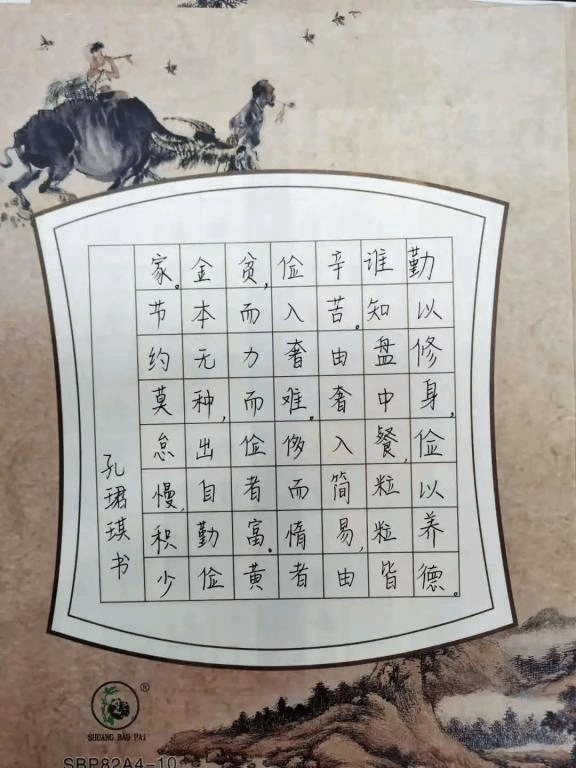 勤以修身,俭以养德。
谁知盘中餐,粒粒皆
辛苦。由奢入简易,由
俭入奢难。侈而惰者
贫,而力而俭者富。黄
金本无种,出自勤俭
家。节约莫怠慢,积少
孔珺琪书
®
SHUANG BAO PAI
SBP82A4-10